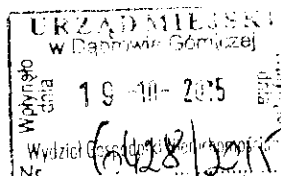 URZĄD MIEJSKI
w Dąbrowie Górniczej
Wpłynęło
dnia
19 -10- 2015
Wydział Gospodarki Nieruchomościami
Nr